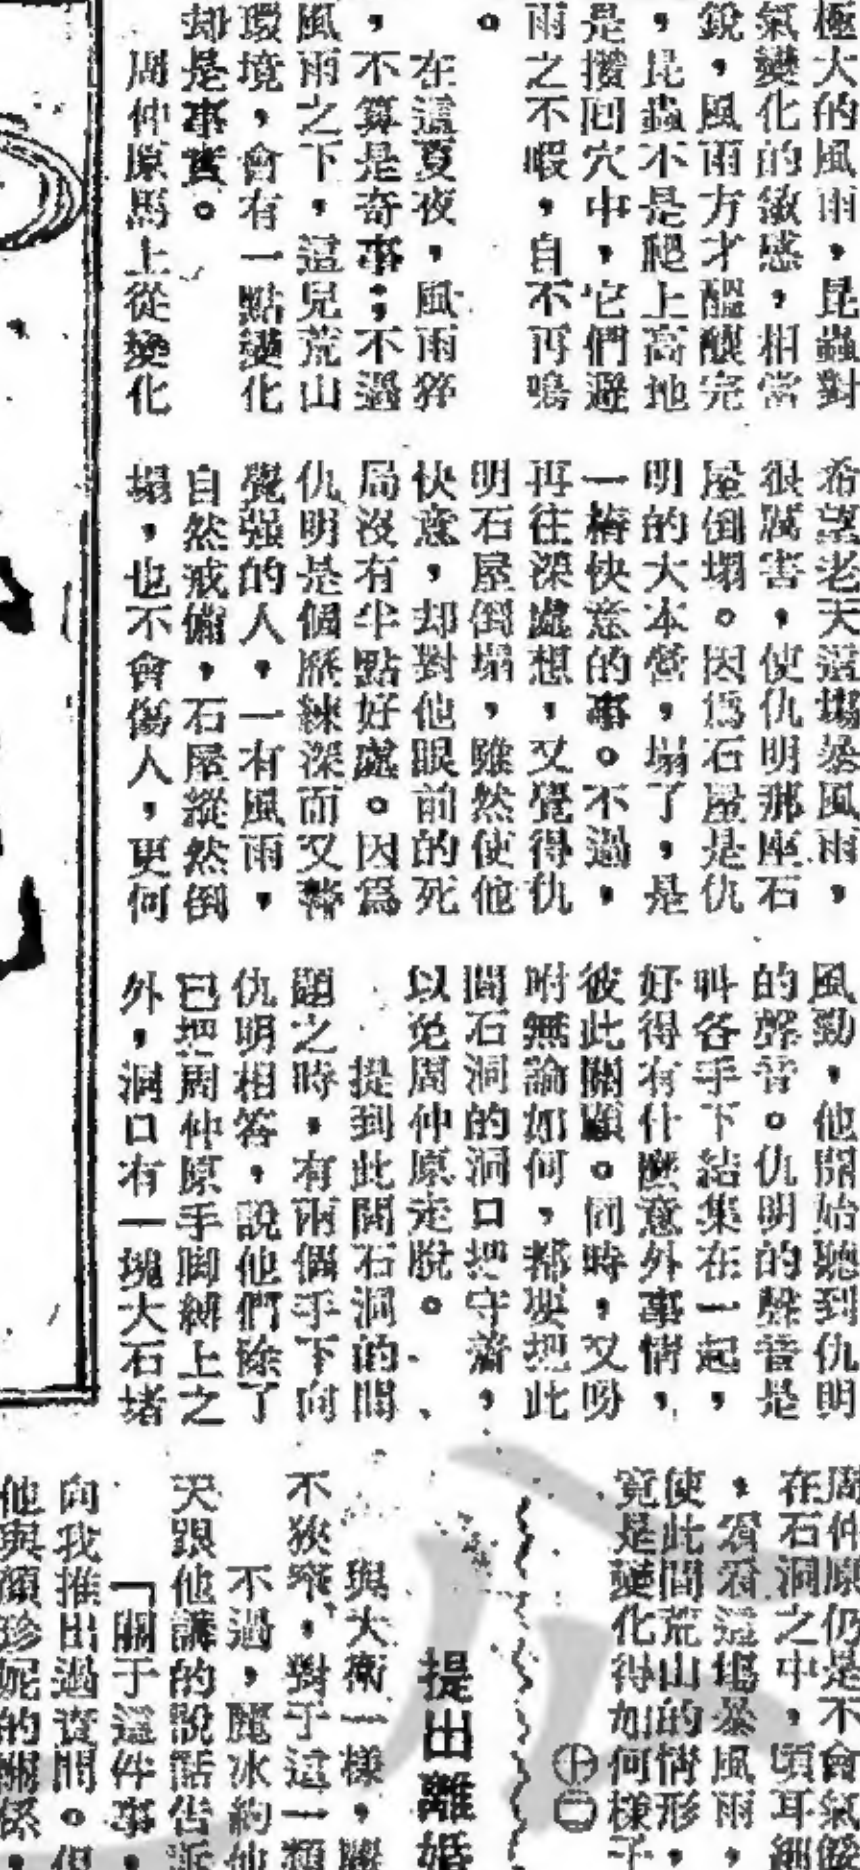 極大的風雨，昆蟲對
氣變化的敏感，相當
銳，風雨方才醞釀完
，昆蟲不是爬上高地
是攢囘穴中，它們避
雨之不暇，自不再鳴
。
在這夏夜，風雨猝
，不算是奇事；不過
風雨之下，這兒荒山
環境，會有一點變化
却是事實。
周仲原馬上從變化
希望老天這場暴風雨，
很厲害，使仇明那座石
屋倒塌。因爲石屋是仇
明的大本營，塌了，是
一樁快意的事。不過，
再往深處想，又覺得仇
明石屋倒塌，雖然使他
快意，却對他眼前的死
局沒有半點好處。因爲
仇明是個歷練深而又警
覺强的人，一有風雨，
自然戒備，石屋縱然倒
塌，也不會傷人，更何
風勁，他開始聽到仇明
的聲音。仇明的聲音是
叫各手下結集在一起，
好得有什麼意外事情，
彼此關顧。同時，又吩
咐無論如何，都要把此
間石洞的洞口把守着，
以免周仲原走脫。
提到此間石洞的問
題之時，有兩個手下向
仇明相答，說他們除了
已把周仲原手脚綑上之
外，洞口有一塊大石堵
周仲原仍是不會氣餒
在石洞之中，傾耳細
，看看這塲暴風雨，
使此間荒山的情形，
竟是變化得如何樣子，
㊉㊁
提出離婚
與大衛一樣，
不狹窄，對于這一類
不過，麗冰約他
天跟他講的說話告訴
「關于這件事，
向我推出過資問。但
他與顏珍妮的關係，